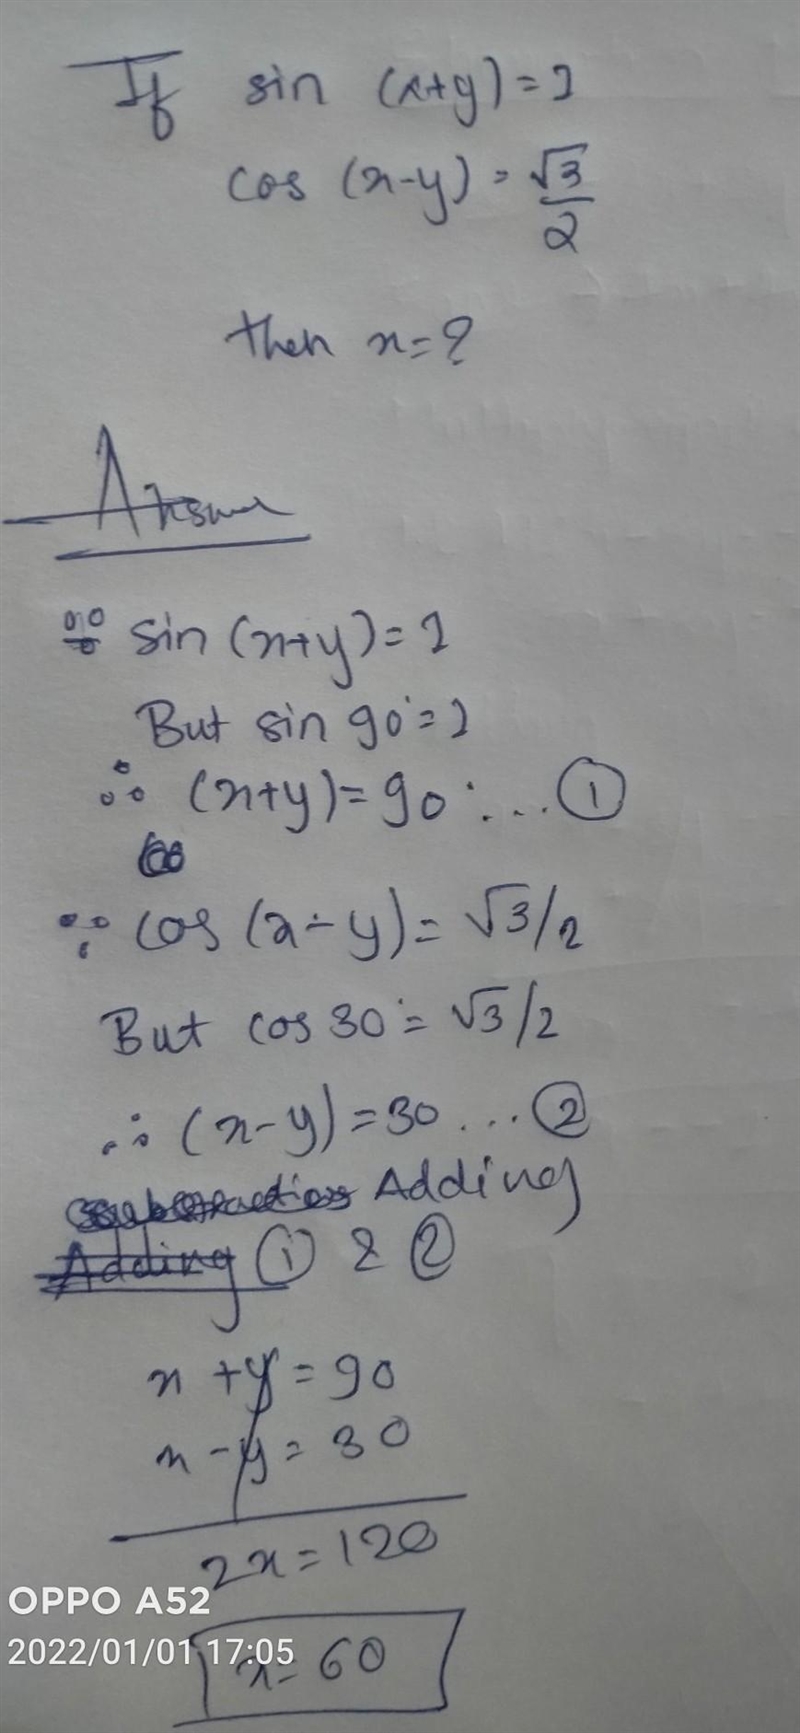 If sin (x+y)=1
cos (x-y) = √3/2
then x=?
Answer
∵ sin (x+y)=1
But sin 90°=1
∴ (x+y)=90° ... ①
∵ cos (x-y)= √3/2
But cos 30°= √3/2
∴ (x-y)=30 ... ②
Adding
① & ②
x +y = 90
x -y = 30
2x=120
x= 60
OPPO A52
2022/01/01 17:05